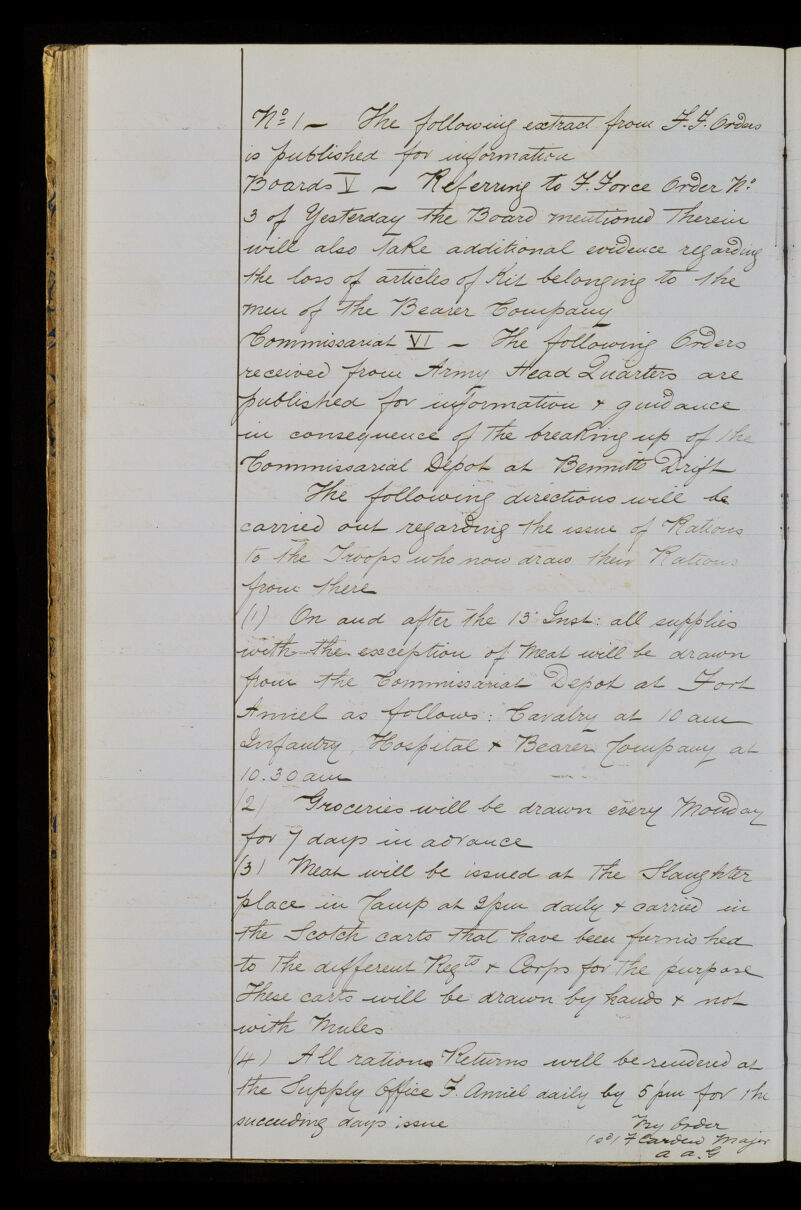 No 1 – The following extract from F.F. Orders
is published for information
Boards V – Referring to F. Force Order No
3 of Yesterday the Board mentioned Therein
will also take additional evidence regarding
the loss of articles of Kit belonging to the
men of the Bearer Company
Commissariat VI – The following Orders
received from Army Head Quarters are
published for information & guidance
in consequence of the breaking up of the
Commissariat Depot at Drift
The following directions will be
carried out regarding the issue of Rations
to the Troops who now draw their Rations
from there
(1) On and after the 13 Inst: all supplies
with the exception of Meat will be drawn
from the Commissariat Depot at Fort
Amiel as follows: Cavalry at 10 am
Infantry, Hospital & Bearer Company at
10.30 am
(2) Groceries will be drawn every Monday
for 7 days in advance
(3) Meat will be issued at the Slaughter
place in Camp at 2 pm daily & carried in
the Scotch carts that have been furnished
to the different Regts & Corps for the purpose
These carts will be drawn by hands & not
with Mules
(4) All rations Returns will be rendered at
the Supply Office F. Amiel daily by 5 pm for the
succeeding days issue
By Order
(sd) F Carden Major
A A. G